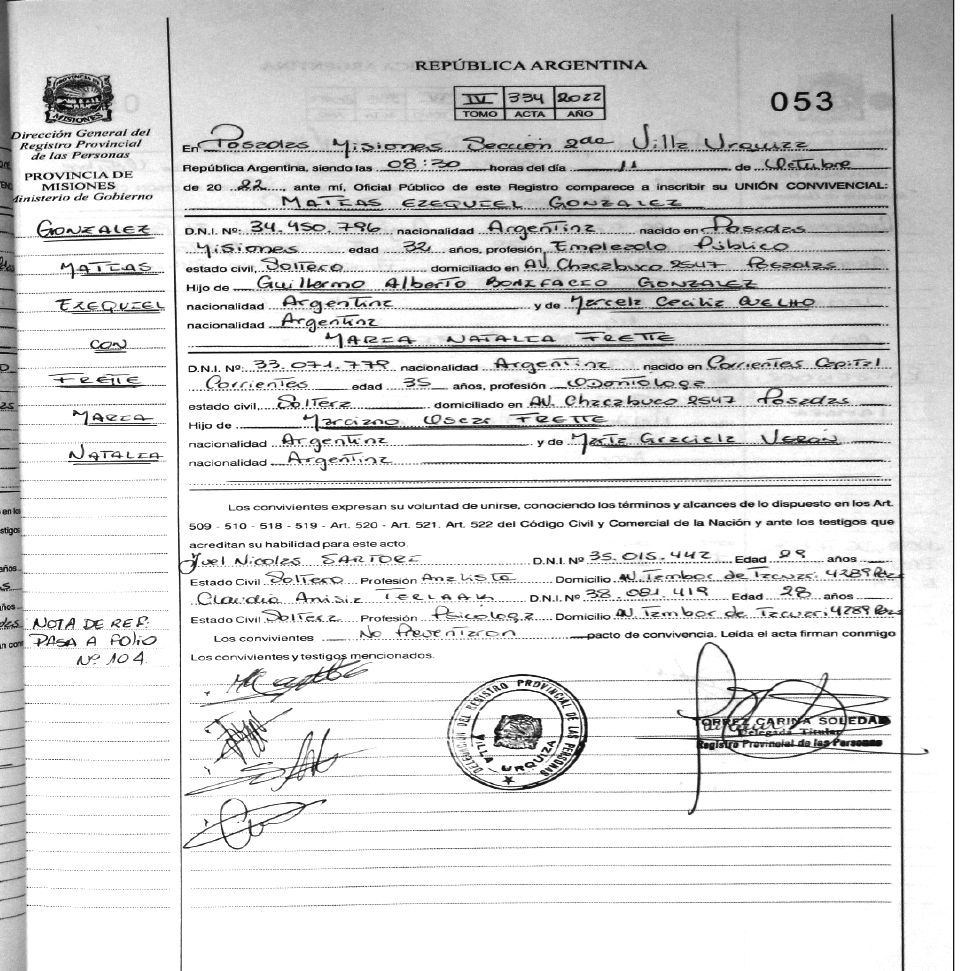 REPÚBLICA ARGENTINA
IV 334 2022
TOMO ACTA AÑO
053
PROVINCIA DE MISIONES
Dirección General del
Registro Provincial
de las Personas
PROVINCIA DE
MISIONES
Ministerio de Gobierno
GONZALEZ
MATIAS
EZEQUIEL
CON
FRETTE
MARIA
NATALIA
NOTA DE REF.
PASA A FOLIO
Nº 104
En Posadas Misiones Sección 2da Villa Urquiza
República Argentina, siendo las 08:30 horas del día 11 de Octubre
de 20 22, ante mí, Oficial Público de este Registro comparece a inscribir su UNIÓN CONVIVENCIAL:
MATIAS EZEQUIEL GONZALEZ
D.N.I. Nº: 34.450.796 nacionalidad Argentina nacido en Posadas
Misiones edad 32 años, profesión Empleado Público
estado civil, Soltero domiciliado en AV. Chacabuco 2547 Posadas
Hijo de Guillermo Alberto BONIFACIO GONZALEZ
nacionalidad Argentina y de Marcela Cecilia AVELHO
nacionalidad Argentina
MARIA NATALIA FRETTE
D.N.I. Nº: 33.071.779 nacionalidad Argentina nacido en Corrientes Capital
Corrientes edad 35 años, profesión Odontóloga
estado civil, Soltera domiciliado en AV. Chacabuco 2547 Posadas
Hijo de Marciano Oscar FRETTE
nacionalidad Argentina y de Marta Graciela VERÓN
nacionalidad Argentina
Los convivientes expresan su voluntad de unirse, conociendo los términos y alcances de lo dispuesto en los Art.
509 - 510 - 518 - 519 - Art. 520 - Art. 521. Art. 522 del Código Civil y Comercial de la Nación y ante los testigos que
acreditan su habilidad para este acto.
Juel Nicolas SARTORI D.N.I. Nº 35.015.442 Edad 29 años
Estado Civil Soltero Profesión Analista Domicilio AV. Tambor de Tacuari 4289 Pos
Claudia Anisia TERLAAK D.N.I. Nº 38.081.419 Edad 28 años
Estado Civil Soltera Profesión Psicologa Domicilio AV. Tambor de Tacuari 4289 Pos
Los convivientes No Presentaron pacto de convivencia. Leída el acta firman conmigo
Los convivientes y testigos mencionados.
DELEGACION DEL REGISTRO PROVINCIAL DE LAS PERSONAS
VILLA URQUIZA
TORREZ CARINA SOLEDAD
Delegada Titular
Registro Provincial de las Personas